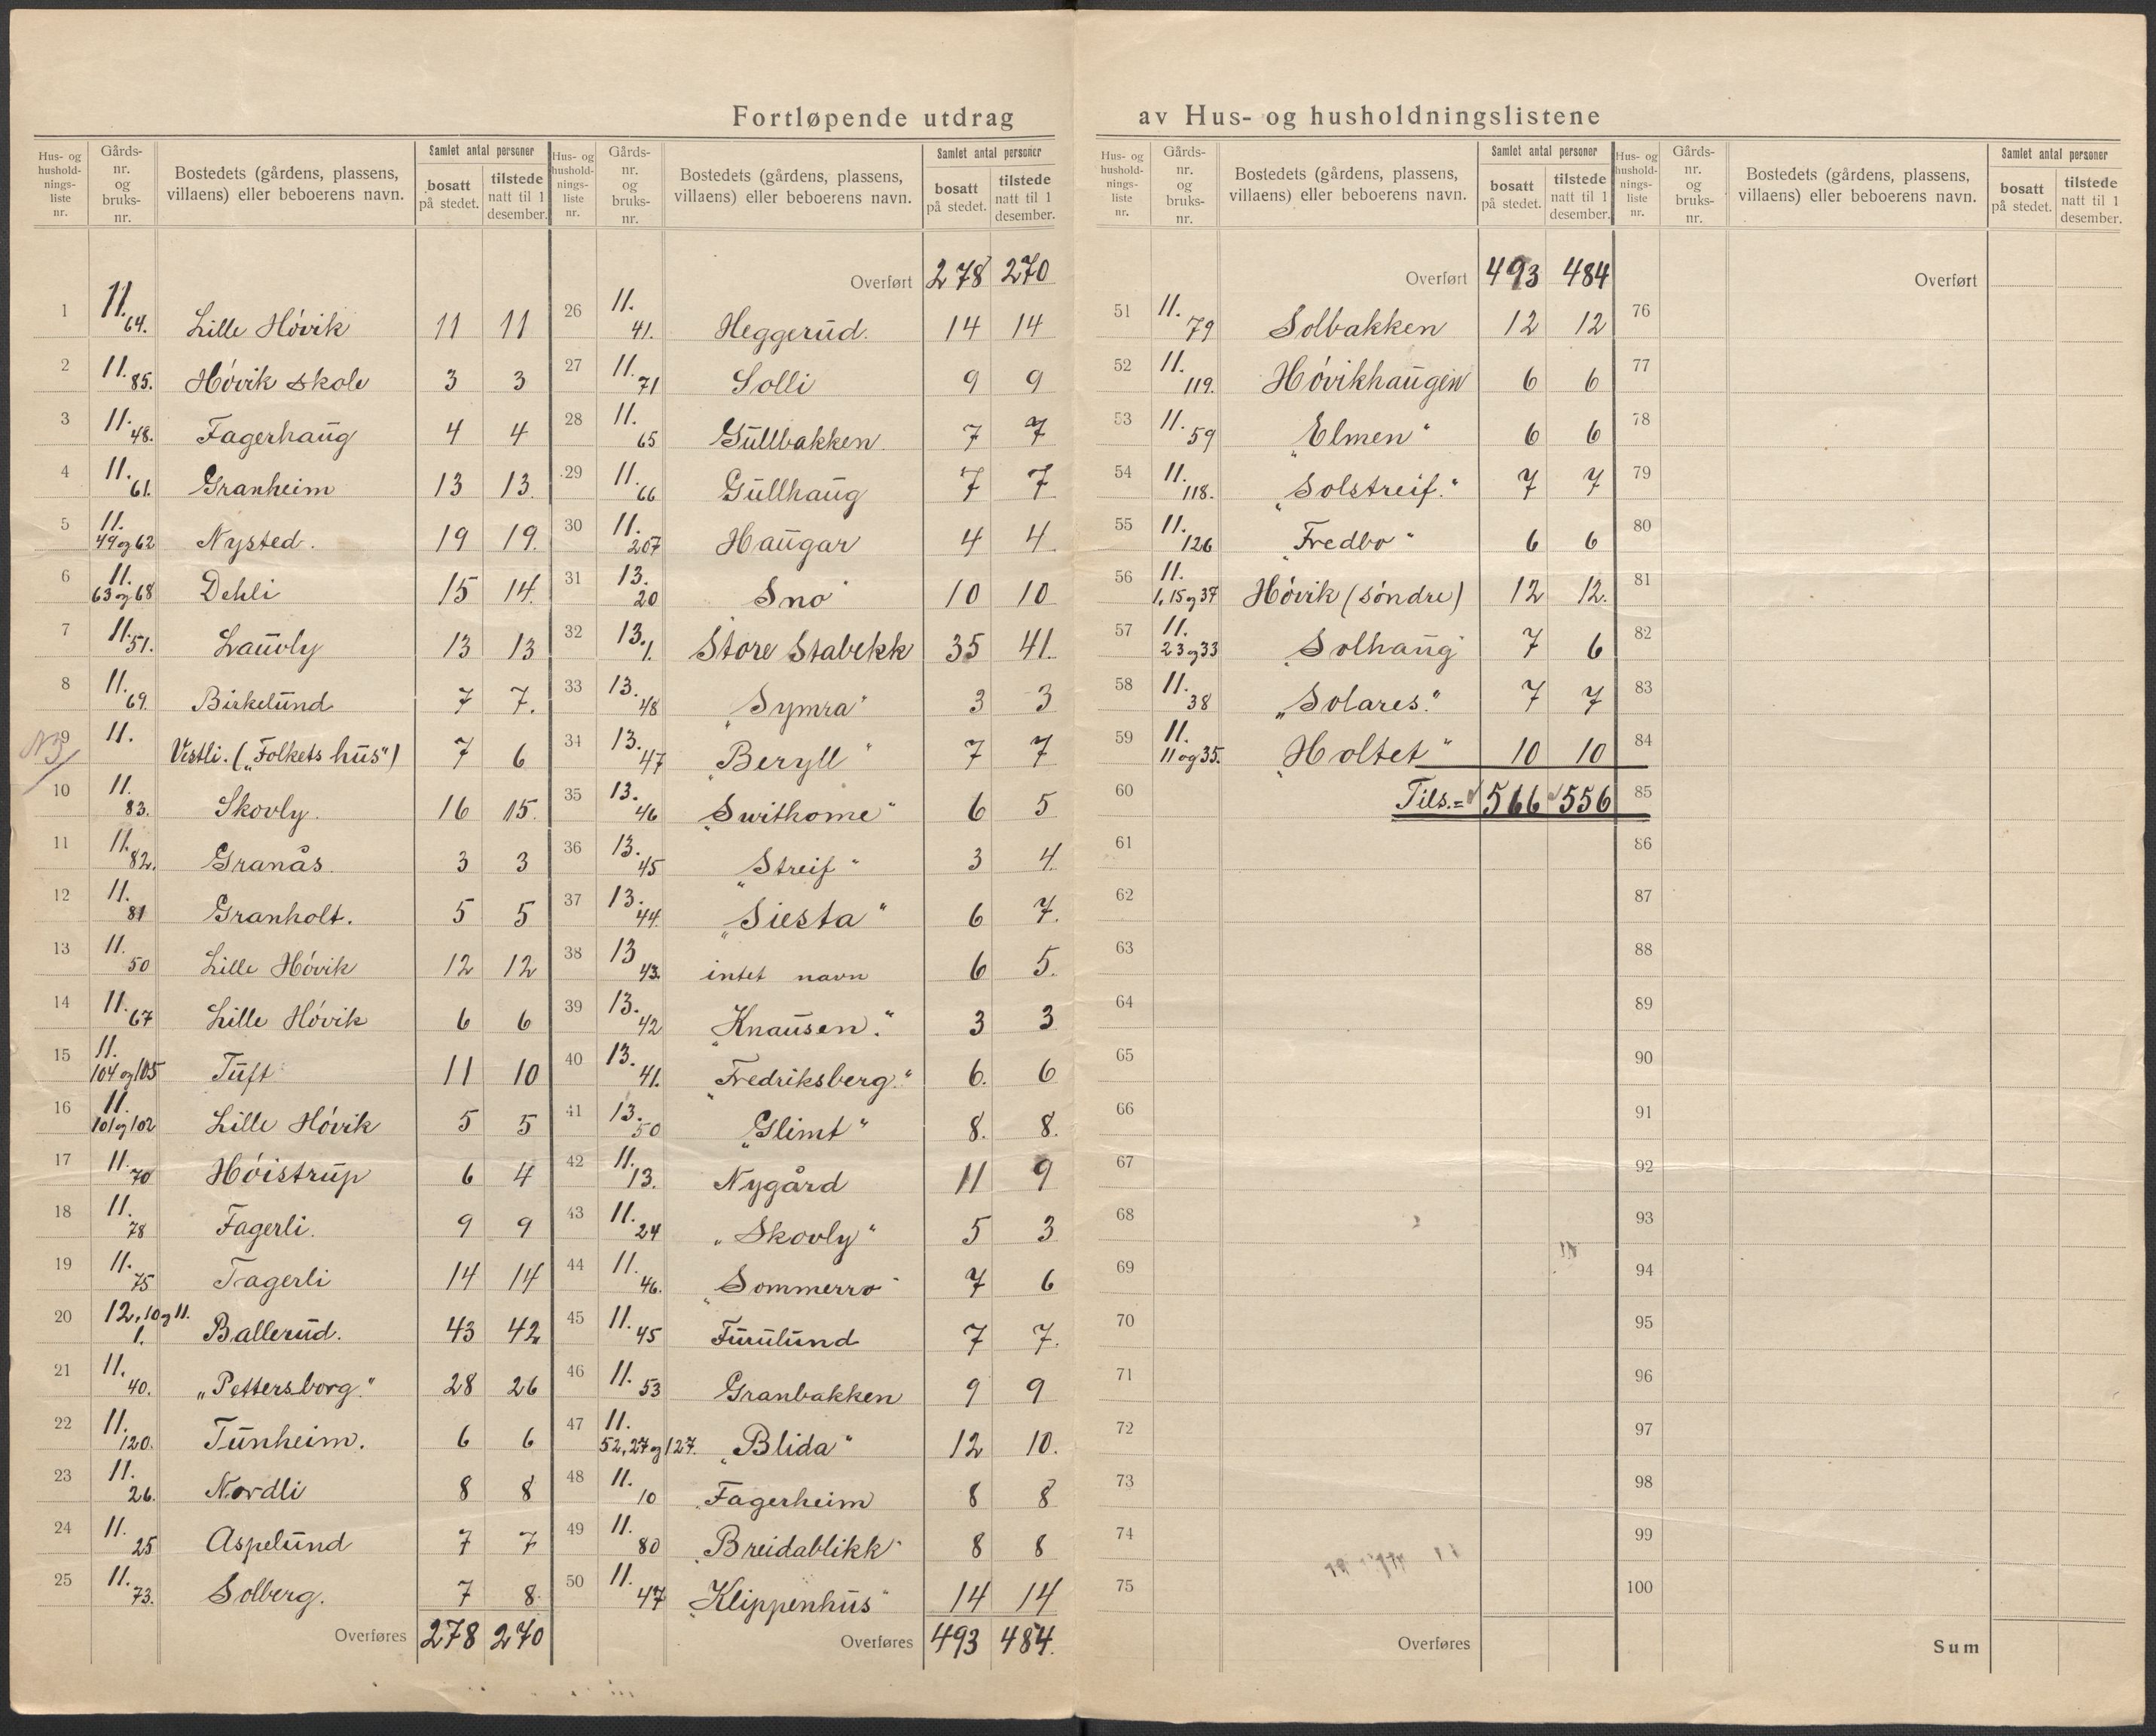 Fortløpende utdrag av Hus- og husholdningslistene
Hus- og husholdnings-liste nr. | Gårds-nr. og bruks-nr. | Bostedets (gårdens, plassens, villaens) eller beboerens navn. | Samlet antal personer | bosatt på stedet. | tilstede natt til 1 desember.
1 11. 64. Lille Høvik 11 11
2 11. 85. Høvik skole 3 3
3 11. 48. Fagerhaug 4 4
4 11. 61. Granheim 13 13.
5 11. 49 og 62 Nysted. 19 19.
6 11. 63 og 68 Dehli 15 14.
7 11. 51. Lauvly 13 13
8 11. 69. Birkelund 7 7.
9 11. Vestli. („Folkets hus") 7 6
10 11. 83. Skovly. 16 15.
11 11. 82. Granås. 3 3
12 11. 81 Granholt. 5 5
13 11. 50 Lille Høvik 12 12
14 11. 67 Lille Høvik 6 6
15 11. 104 og 105 Tuft 11 10
16 11. 101 og 102 Lille Høvik 5 5
17 11. 70 Høistrup 6 4
18 11. 78 Fagerli. 9 9
19 11. 75 Fagerli 14 14
20 12, 10 og 11. 1. Ballerud. 43 42
21 11. 40. „Pettersborg." 28 26
22 11. 120. Tunheim. 6 6
23 11. 26. Nordli 8 8
24 11. 25 Aspelund 7 7
25 11. 73. Solberg. 7 8.
Overføres 278 270
Hus- og husholdnings-liste nr. | Gårds-nr. og bruks-nr. | Bostedets (gårdens, plassens, villaens) eller beboerens navn. | Samlet antal personer | bosatt på stedet. | tilstede natt til 1 desember.
Overført 278 270
26 11. 41. Heggerud. 14 14
27 11. 71 Solli 9 9
28 11. 65 Gullbakken. 7 7
29 11. 66 Gullhaug 7 7
30 11. 207 Haugar 4 4
31 13. 20 Sno 10 10
32 13. 1. Store Stabekk 35 41.
33 13. 48 „Symra" 3 3
34 13. 47 „Beryll" 7 7
35 13. 46 „Swithome" 6 5
36 13. 45 „Streif" 3 4.
37 13. 44. „Siesta" 6 7.
38 13 43. intet navn 6 5.
39 13. 42 „Knausen." 3 3
40 13. 41. „Fredriksberg." 6. 6
41 13. 50 „Glimt" 8. 8.
42 11. 13. Nygård 11 9
43 11. 24 „Skovly" 5 3
44 11. 46. „Sommerro" 7 6
45 11. 45 Furulund 7 7.
46 11. 53 Granbakken 9 9
47 11. 52, 27 og 127. „Blida" 12 10.
48 11. 10 Fagerheim 8 8
49 11. 80 „Breidablikk" 8 8
50 11. 47 „Klippenhus" 14 14
Overføres 493 484.
Hus- og husholdnings-liste nr. | Gårds-nr. og bruks-nr. | Bostedets (gårdens, plassens, villaens) eller beboerens navn. | Samlet antal personer | bosatt på stedet. | tilstede natt til 1 desember.
Overført 493 484
51 11. 79 Solbakken 12 12
52 11. 119. Høvikhaugen 6 6
53 11. 59 „Elmen" 6 6
54 11. 118. „Solstreif." 7 7
55 11. 126 „Fredbo" 6 6
56 11. 1, 15 og 37 Høvik (søndre) 12 12.
57 11. 23 og 33 Solhaug 7 6
58 11. 38 „Solares." 7 7
59 11. 11 og 35. „Holtet" 10 10
60 Tils. = 566 556
61
62
63
64
65
66
67
68
69
70
71
72
73
74
75
Overføres
Hus- og husholdnings-liste nr. | Gårds-nr. og bruks-nr. | Bostedets (gårdens, plassens, villaens) eller beboerens navn. | Samlet antal personer | bosatt på stedet. | tilstede natt til 1 desember.
Overført
76
77
78
79
80
81
82
83
84
85
86
87
88
89
90
91
92
93
94
95
96
97
98
99
100
Sum